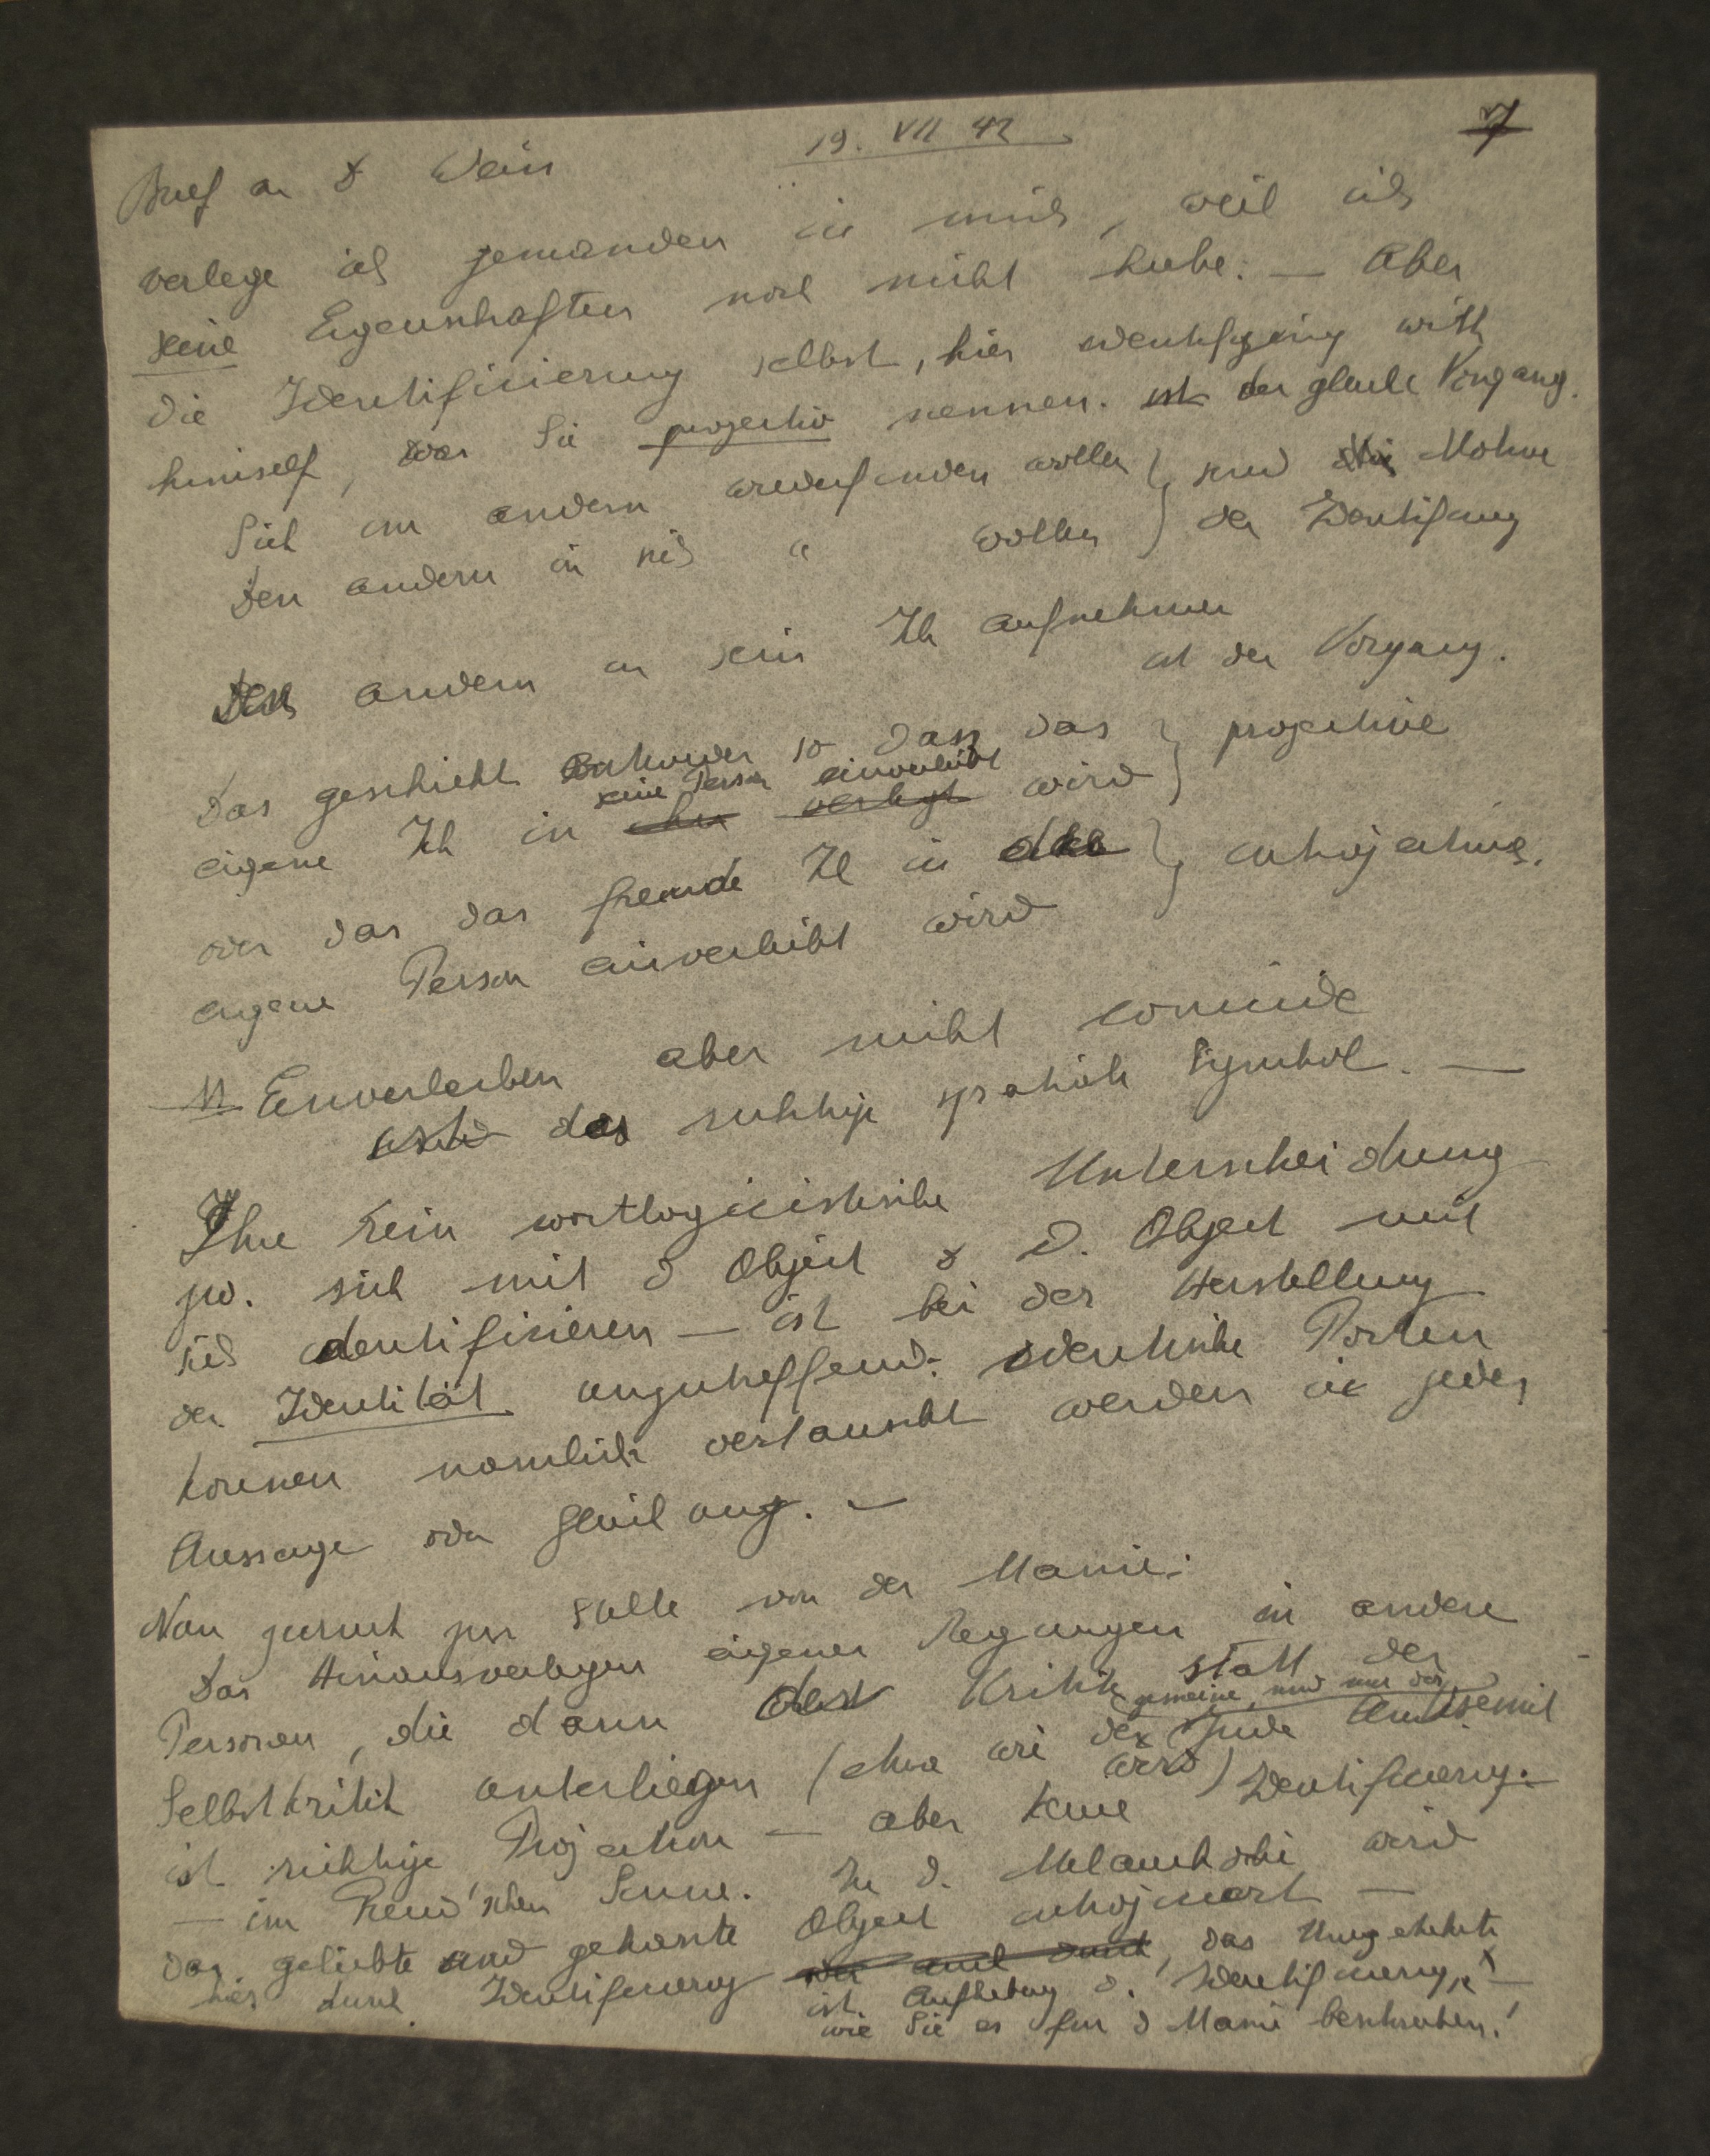 19. VII 42
7
Brief an & Weiss
verlege ich jemanden in mich, weil ich
seine Eigenschaften noch nicht habe. — Aber
die Identifizierung selbst, hies identifying with
himself, was Sie projectiv nennen. ist der gleiche Vorgang.
Sich im andern wiederfinden wollen } sind die Motive
Den andern in sich " wollen } der Identifizung
Den andern in sein Ich aufnehmen
ist der Vorgang.
Das geschieht entweder so dass das } projective
seine Person einverleibt
eigene Ich in verlegt wird }
oder das das fremde Ich in die } introjective.
eigene Person einverleibt wird
N Einverleiben aber nicht
das richtige Symbol. —
Ihre rein wortlogicistische Unterscheidung
zw. sich mit d Object & d. Object mit
sich identifizieren — ist bei der Herstellung
der Identität unzutreffend. identische Posten
können nämlich vertauscht werden in jeder
Aussage oder Gleichung. —
Nun zurück zur Stelle von der Manie:
Das Hinausverlegen eigener Regungen in andere
Personen, die dann der Kritik statt der
gemeine, und nur der
Selbstkritik unterliegen (etwa wie der Jude Antisemit
wird) Identifizierung.
ist richtige Projection — aber keine
— im Freud'schen Sinne. In d. Melancholie wird
das geliebte und gehasste Object introjiciert —
hies durch Identifizierung oder auch durch, das Umgekehrte
ist Aufhebung d. Identifizierung, —
wie Sie es für d Manie beschreiben!